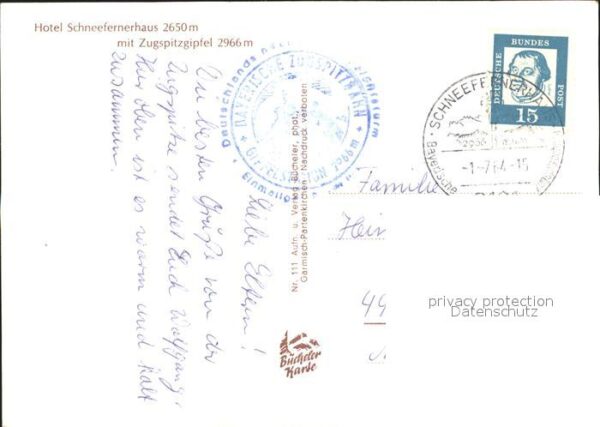 Hotel Schneefernerhaus 2650 m
mit Zugspitzgipfel 2966 m
Liebe Eltern!
Die besten Grüße von der
Zugspitze sendet Euch Wolfgang.
Hier oben ist es warm und kalt
zusammen.
BAYERISCHE ZUGSPITZBAHN
GIPFELSTATION
2966 m
Nr. 111 Aufn. u. Verlag Bücheler, phot.,
Garmisch-Partenkirchen Nachdruck verboten
Bücheler
Karte
DEUTSCHE
BUNDES
POST
15
SCHNEEFERNERHA
2966
-1.-7.64.-15
Bayerische
Familie
Hein
49
privacy protection
Datenschutz